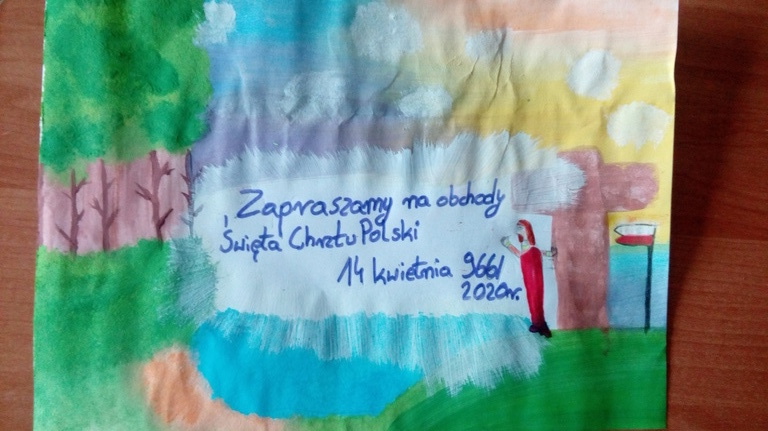 Zapraszamy na obchody
Święta Chrztu Polski
14 kwietnia 966/
2020r.